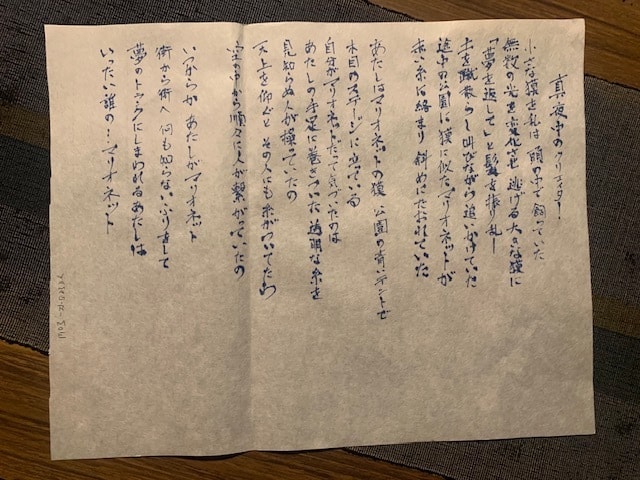 真夜中の
小さな獏を私は頭の中で飼っていた
無数の光を変化させ逃げる大きな獏に
「夢を返して」と髪を振り乱し
土を蹴散らし叫びながら追いかけていた
途中の公園に獏に似たマリオネットが
赤い糸に絡まり斜めにたおれていた
あたしはマリオネットの獏 公園の青いテントで
木目のステージに立っている
自分がマリオネットだって気づいたのは
あたしの手足に巻きついた透明な糸を
見知らぬ人が操っていたの
天上を仰ぐと その人にも糸がついてたわ
空の中から順々に人が繋がっていたの
いつからか あたしがマリオネット
街から街へ 何も知らないふりをして
夢のトランクにしまわれるあたしは
いったい誰の…マリオネット